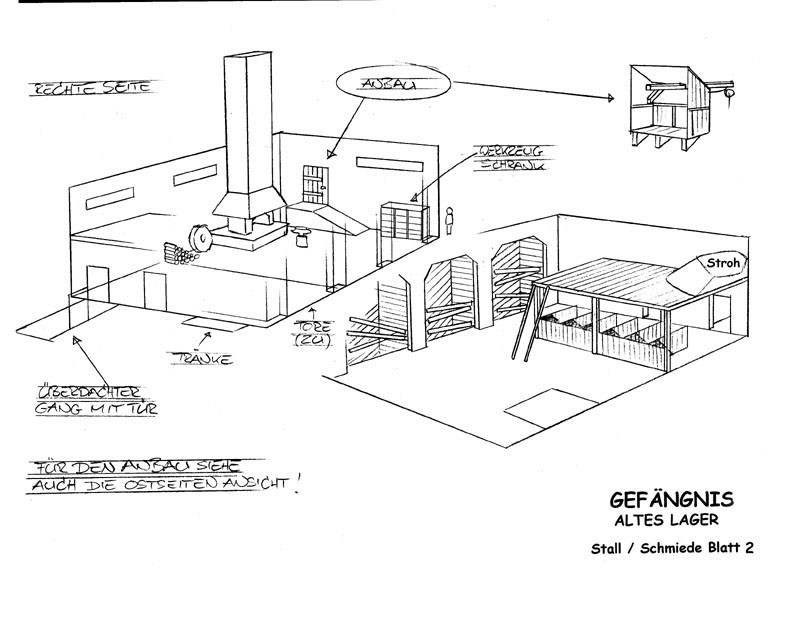 RECHTE SEITE
ANBAU
WERKZEUG
SCHRANK
Stroh
TORE
(ZU)
TRÄNKE
ÜBERDACHTER
GANG MIT TÜR
FÜR DEN ANBAU SIEHE
AUCH DIE OSTSEITEN ANSICHT!
GEFÄNGNIS
ALTES LAGER
Stall / Schmiede Blatt 2